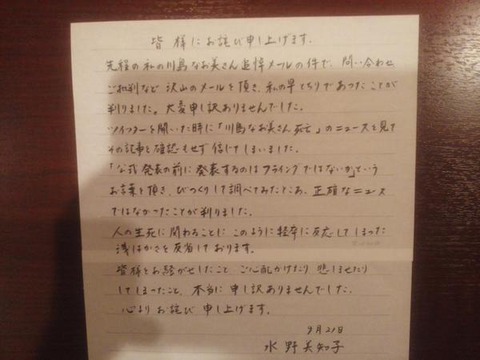 皆様にお詫び申し上げます。
先程の私の川島なお美さん追悼メールの件で、問い合わせ
ご批判など沢山のメールを頂き、私の早とちりであったことが
判りました。大変申し訳ありませんでした。
ツイッターを開いた時に「川島なお美さん死亡」のニュースを見て
その記事を確認もせず信じてしまいました。
「公式発表の前に発表するのはフライングではないか」という
お言葉を頂き、びっくりして調べてみたところ、正確なニュース
ではなかったことが判りました。
人の生死に関わることに このように軽率に反応してしまった
浅はかさを反省しております。
皆様をお騒がせしたこと、ご心配かけたり 悲しませたり
してしまったこと、本当に申し訳ありませんでした。
心よりお詫び申し上げます。
9月21日
水野美知子